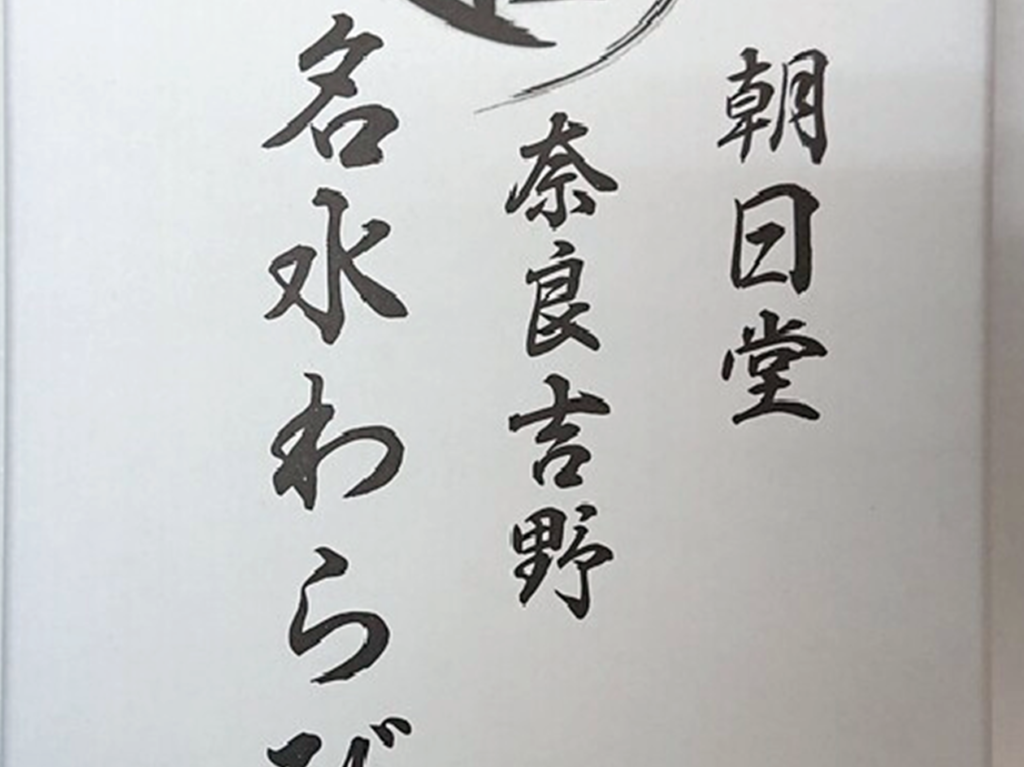 朝日堂
奈良吉野
名水わらび